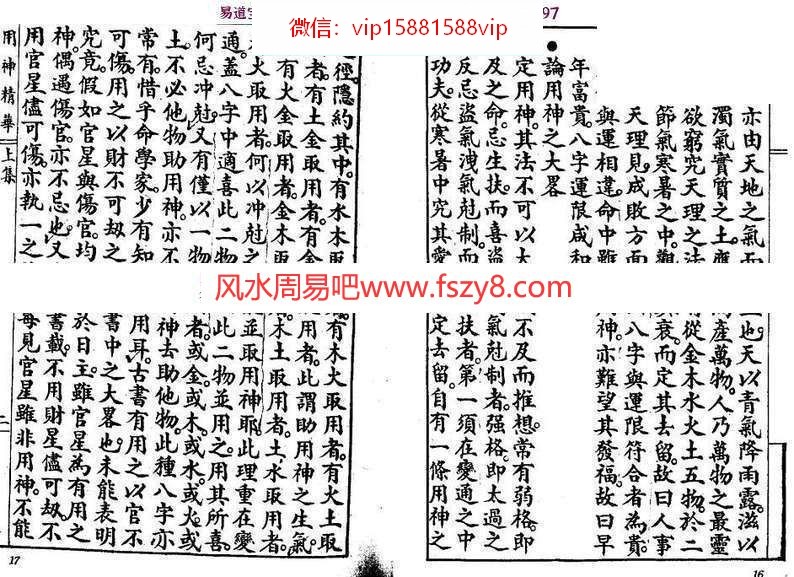 易道
97
微信：vip15881588vip
亦由天地之氣而
濁氣實質之土應
欲窮究天理之法
節氣寒暑之中觀
天理見成敗方面
與運相違命中雖
年富貴八字運限咸和
論用神之大畧
定用神。其法不可以大
及之命。忌生扶而喜盜
反忌盜氣洩氣尅制。而
功夫。從寒暑中究其愛
風水周易吧www.fszy8.com
也。天以青氣降雨露。滋以
產萬物。人乃萬物之最靈
從金木水火土五物。於二
衰。而定其去留。故曰人事
八字與運限符合者為貴。
神。亦難望其發福。故曰早
不及而推想。常有弱格。即
氣尅制者。强格。即太過之
扶者。第一須在變通之中
定去留。自有一條用神之
16
徑。隱約其中。有水木取
者。有土金取用者。有金
有火金取用者。金木取
火取用者。何以冲尅之
通。蓋八字中適喜此二物
何忌冲尅。又有僅以一物
土。不必他物助用神。亦不
常有。惜乎命學家少有知
可傷。用之以財不可刼之
究竟。假如官星與傷官。均
神。偶遇傷官。亦不忌也。又
用官星儘可傷。亦執一之
用神精華 上集
有木火取用者。有火土取
用者。此謂助用神之生氣
木土取用者。土水取用者。
並取用神耶。此理重在變
此二物並用之。用其所喜。
者。或金。或木。或水。或火。或
神去助他物。此種八字亦
用耳。古書有用之以官不
書中之大畧也。未能表明
於日主。雖官星為有用之
書載。不用財星儘可刼。不
每見官星雖非用神。不能
17